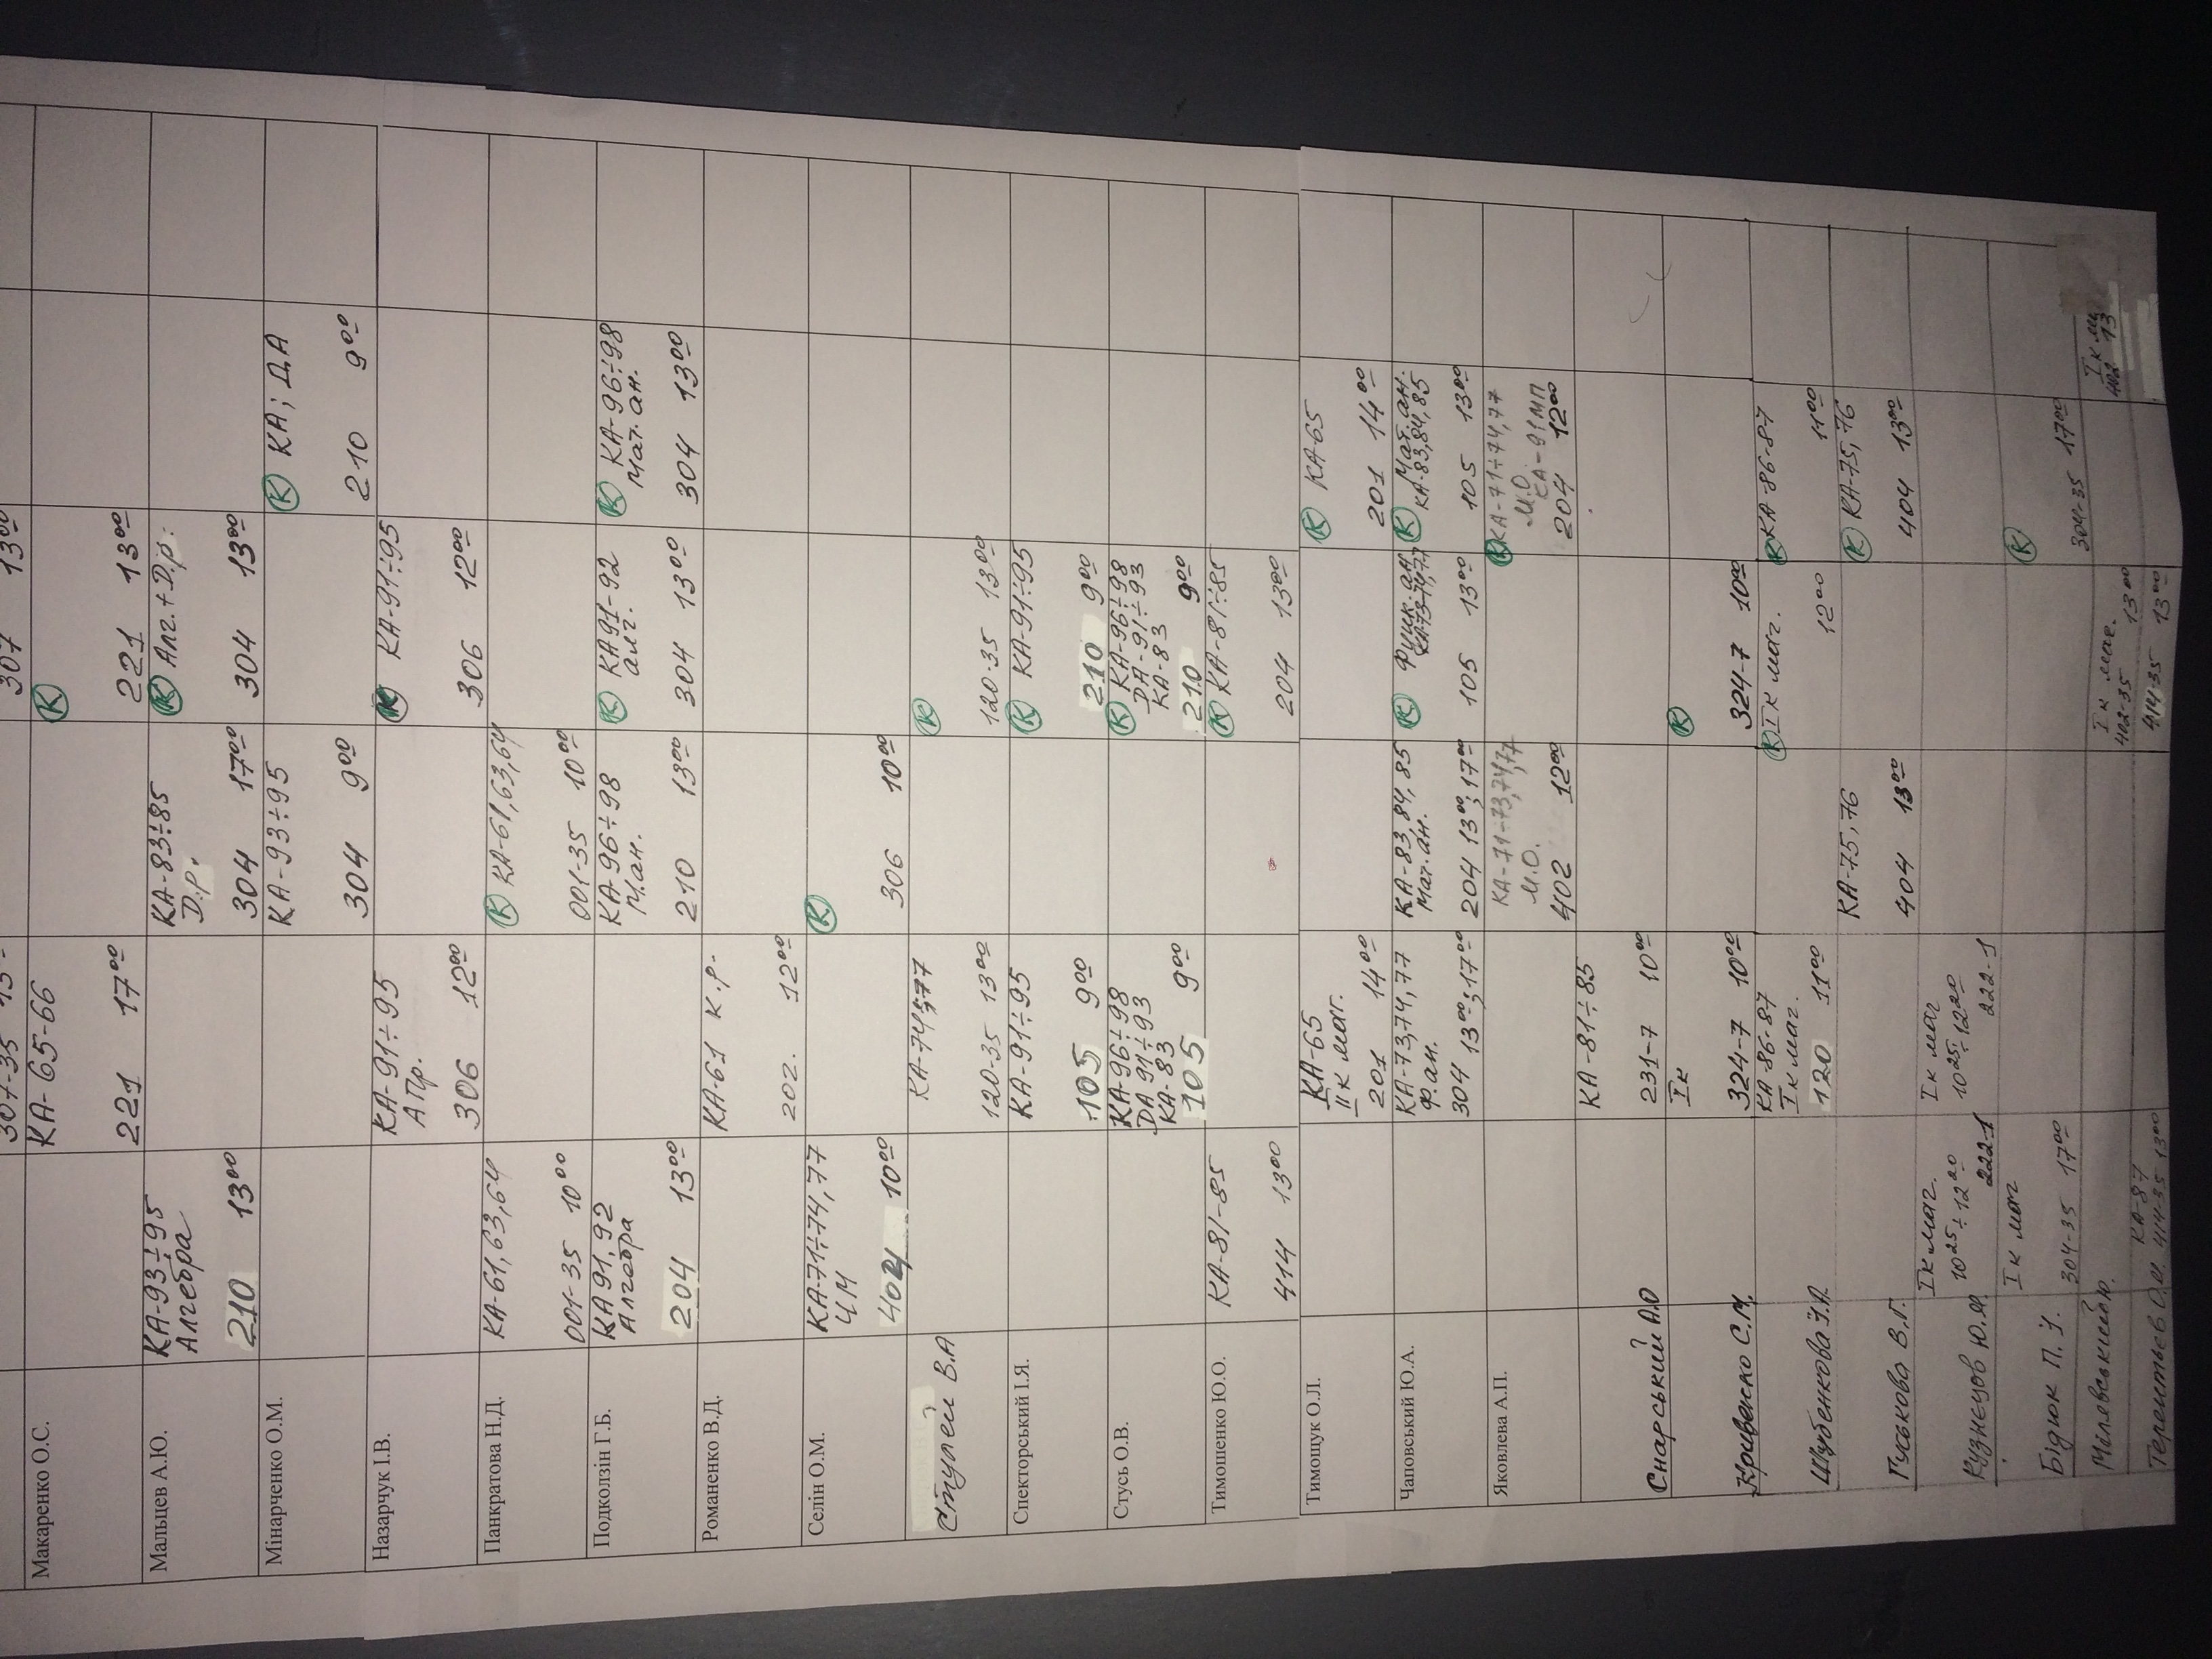 307-35 13
307 13⁰⁰
Макаренко О.С.
КА-65-66
К
221 17⁰⁰
221 13⁰⁰
Мальцев А.Ю.
КА-93÷95
Алгебра
210 13⁰⁰
КА-83÷85
D.р.
304 17⁰⁰
К Алг.+D.р.
304 13⁰⁰
Мінарченко О.М.
КА-93÷95
304 9⁰⁰
К КА; ДА
210 9⁰⁰
Назарчук І.В.
КА-91÷95
АПр.
306 12⁰⁰
К КА-91÷95
306 12⁰⁰
Панкратова Н.Д.
КА-61,63,64
001-35 10⁰⁰
К КА-61,63,64
001-35 10⁰⁰
Подколзін Г.Б.
КА91,92
Алгебра
204 13⁰⁰
КА-96÷98
М.ан.
210 13⁰⁰
К КА91-92
алг.
304 13⁰⁰
К КА-96÷98
Мат.ан.
304 13⁰⁰
Романенко В.Д.
КА-61 к.р-
202. 12⁰⁰
Селін О.М.
КА-71÷74,77
ЧМ
404 10⁰⁰
К
306 10⁰⁰
Стулей В.А
КА-74;77
120-35 13⁰⁰
К
120-35 13⁰⁰
Спекторський І.Я.
КА-91÷95
105 9⁰⁰
К КА-91÷95
210 9⁰⁰
Стусь О.В.
КА-96÷98
DA 91÷93
КА-83
105 9⁰⁰
К КА-96÷98
DA-91÷93
КА-83
210 9⁰⁰
Тимошенко Ю.О.
КА-81-85
414 13⁰⁰
К КА-81÷85
204 13⁰⁰
Тимощук О.Л.
КА-65
II к маг.
201 14⁰⁰
К КА-65
201 14⁰⁰
Чаповський Ю.А.
КА-73,74,77
Ф.ан.
304 13⁰⁰;17⁰⁰
КА-83,84,85
Мат.ан.
204 13⁰⁰;17⁰⁰
К Функ.ан.
КА-73-74,77
105 13⁰⁰
К Мат.ан.
КА-83,84,85
105 13⁰⁰
Яковлева А.П.
КА-71-73,74,77
М.О.
402 12⁰⁰
К КА-71÷74,77
М.О.
КА-91МП
204 12⁰⁰
Снарський А.О
КА-81÷85
231-7 10⁰⁰
Кривенко С.М.
Iк
324-7 10⁰⁰
К
324-7 10⁰⁰
Шубенкова І.А.
КА-86-87
Iк маг.
120 11⁰⁰
К Iк маг.
12⁰⁰
К КА-86-87
11⁰⁰
Гуськова В.Г.
КА-75,76
404 13⁰⁰
К КА-75,76
404 13⁰⁰
Кузнєцов Ю.М.
Iк маг.
10²⁵÷12²⁰
222-1
Iк маг
10²⁵÷12²⁰
222-1
Бідюк П.І.
Iк маг
304-35 17⁰⁰
К
304-35 17⁰⁰
Мілявський Ю.
Iк маг.
402-35 13⁰⁰
Iк
402 13
Терентьєв О.М.
КА-87
414-35 13⁰⁰
414-35 13⁰⁰